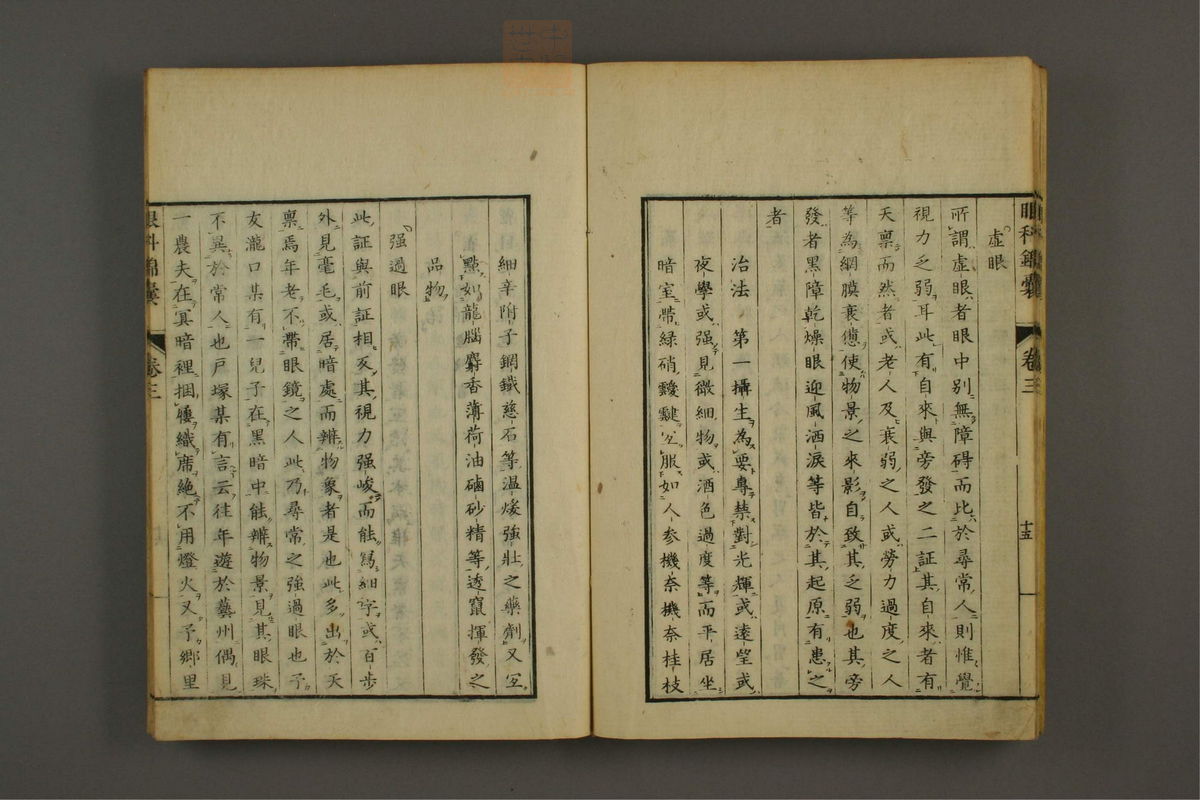 眼科錦囊 卷三 十五
虛眼
所謂虛眼者眼中別無障碍而比於尋常人則惟覺
視力乏弱耳此有自來與旁發之二証其自來者有
天稟而然者或老人及衰弱之人或勞力過度之人
等為網膜衰憊使物景之來影自致其乏弱也其旁
發者黑障乾燥眼迎風洒淚等皆於其起原有患之
者
治法 第一攝生為要專禁對光輝或遠望或
夜學或强見微細物或酒色過度等而平居坐
暗室帶綠硝靉靆宜服如人參機奈機奈桂枝
細辛附子鋼鐵慈石等温煖強壯之藥劑又宜
點如龍腦麝香薄荷油磠砂精等透竄揮發之
品物
强過眼
此証與前証相反其視力强峻而能寫細字或百步
外見毫毛或居暗處而辨物象者是也此多出於天
稟焉年老不帶眼鏡之人此乃尋常之強過眼也予
友瀧口某有一兒子在黑暗中能辨物景見其眼珠
不異於常人也戸塚某有言云往年遊於藝州偶見
一農夫在冥暗裡捆屨織席絶不用燈火又予鄉里
眼科錦囊 卷三